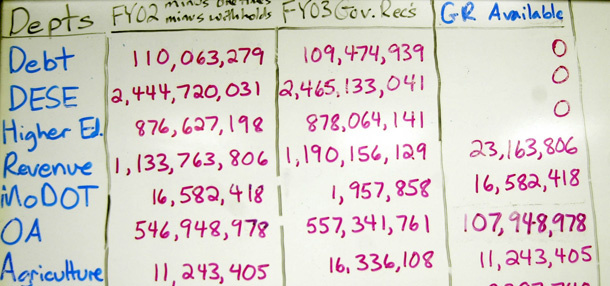 Depts FY02 minus withholds FY03 Gov. Rec's GR Available
Debt 110,063,279 109,474,939 0
DESE 2,444,720,031 2,465,133,041 0
Higher Ed. 876,627,198 878,064,141 0
Revenue 1,133,763,806 1,190,156,129 23,163,806
MoDOT 16,582,418 1,957,858 16,582,418
OA 546,948,978 557,341,761 107,948,978
Agriculture 11,243,405 16,336,108 11,243,405